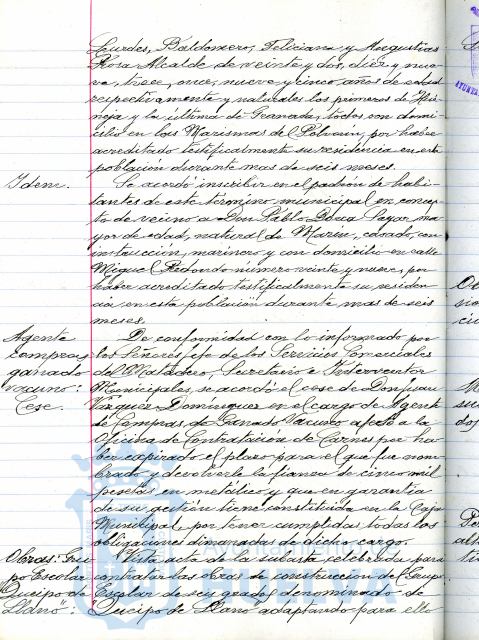 Lurdes, Baldomero, Feliciana y Angustias
Rosa Alcalde de veinte y dos, diez y nue-
ve, trece, once, nueve y cinco, años de edad
respectivamente y naturales los primeros de
y la última de Granada, todos con domi-
cilio en los Marismas del Polvorin, por haber
acreditado testificalmente su residencia en esta
población durante mas de seis meses.
Idem.
Se acordó inscribir en el padrón de habi-
tantes de este término municipal en concep-
to de vecino a Don Pablo Payar, ma-
yor de edad, natural de Marin, casado, con
instrucción, marinero y con domicilio en calle
Miguel Redondo número veinte y nueve, por
haber acreditado testificalmente su residen-
cia en esta población durante mas de seis
meses.
Agente
compras
ganado
vacuno:
Cese.
De conformidad con lo informado por
los Señores Jefe de los Servicios Comerciales
del Matadero, Secretario e Interventor
Municipales, se acordó el cese de Don Juan
Vázquez Domínguez en el cargo de Agente
de Compras de Ganado Vacuno afecto a la
Oficina de Contratación de Carnes por ha-
ber expirado el plazo para el que fue nom-
brado y devolverle la fianza de cinco mil
pesetas en metálico y que en garantía
de su gestión tiene constituida en la Caja
Municipal, por tener cumplidas todas las
obligaciones dimanadas de dicho cargo.
Obras: Gru-
po Escolar
Queipo de
Llano":
Vista acta de la subasta celebrada para
contratar las obras de construcción del Grupo
Escolar de seis grados denominado de
"Queipo de Llano" adaptando para ello
Ayuntamiento